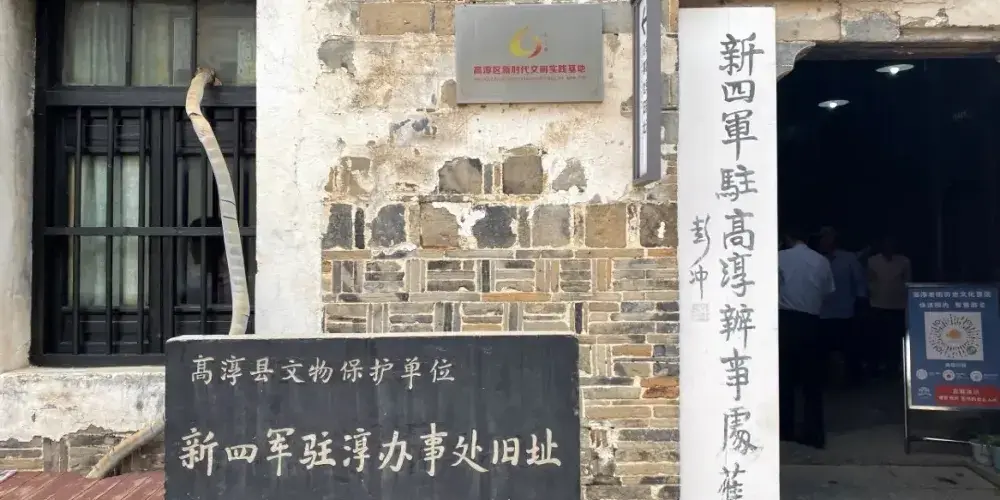 高淳区新时代文明实践基地
新四軍駐高淳辦事處舊
彭冲
高淳县文物保护单位
新四军驻淳办事处旧址